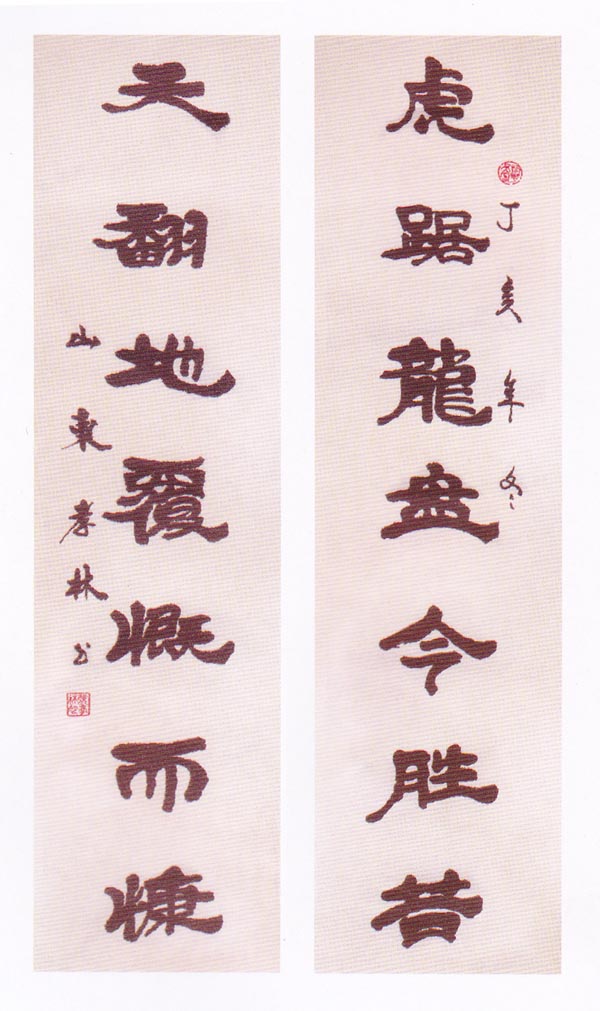 虎踞龍盘今胜昔
丁亥年冬
天翻地覆慨而慷
山東孝林书